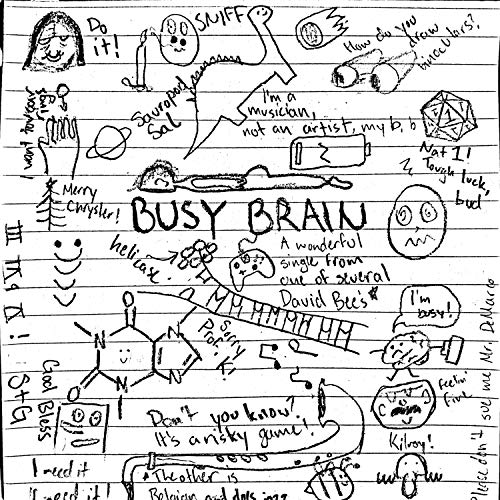 Do
it!
SNIFF
How do you
draw
binoculars?
Sauropod
Sal
I'm a
musician,
not an artist, my b, b
Nat 1!
Tough luck,
bud
Merry
Chrysler!
BUSY BRAIN
helicase!
A wonderful
single from
one of several
David Bee's*
I'm
busy!
Sorry
Prof. K!
O
N
N
O
N
N
God Bless
S+G
Don't you know?
It's a risky game!
feelin'
fine
Kilroy!
Please don't sue me Mr. DeMarco
I need it
I need it!
*The other is
Belgian and does jazz